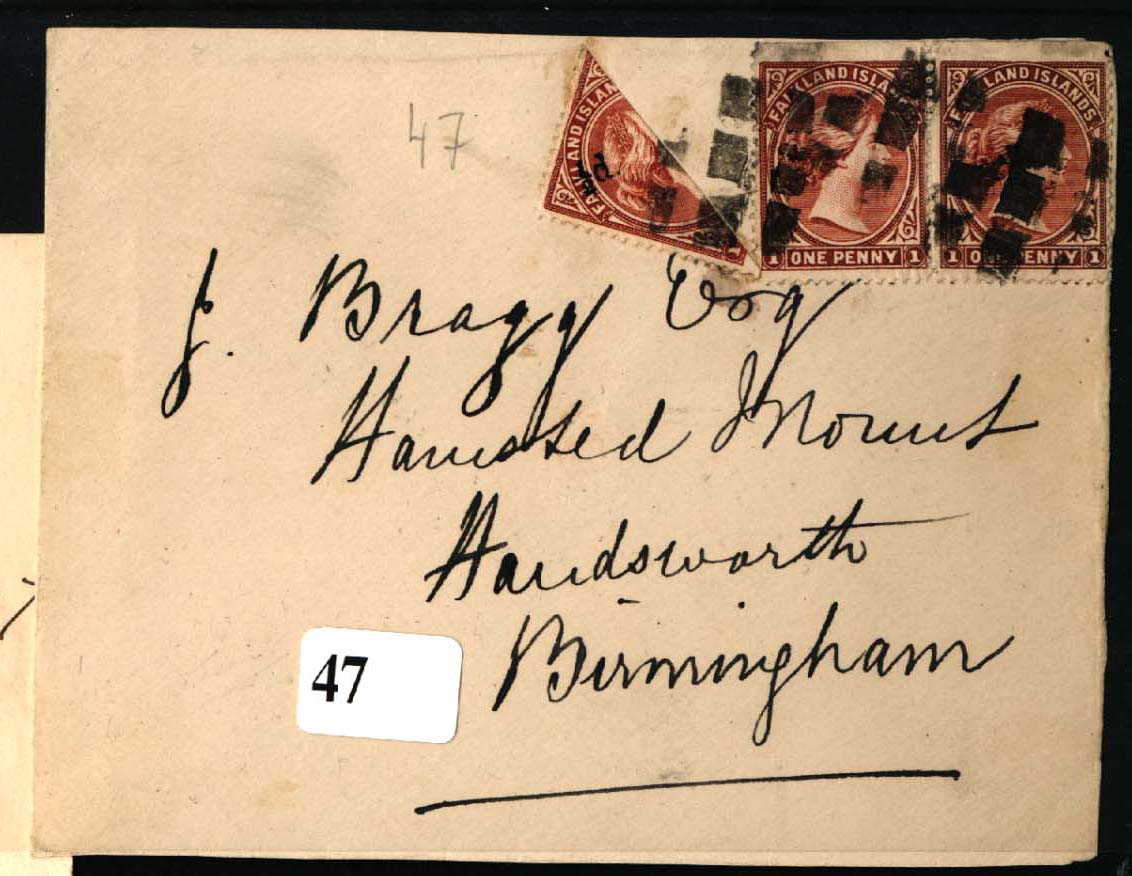 47
FALKLAND ISLAN
d.
1
FALKLAND ISLANDS
1 ONE PENNY 1
FALKLAND ISLANDS
1 ONE PENNY 1
J. Bragg Esq
Hamsted Mount
Handsworth
Birmingham
47